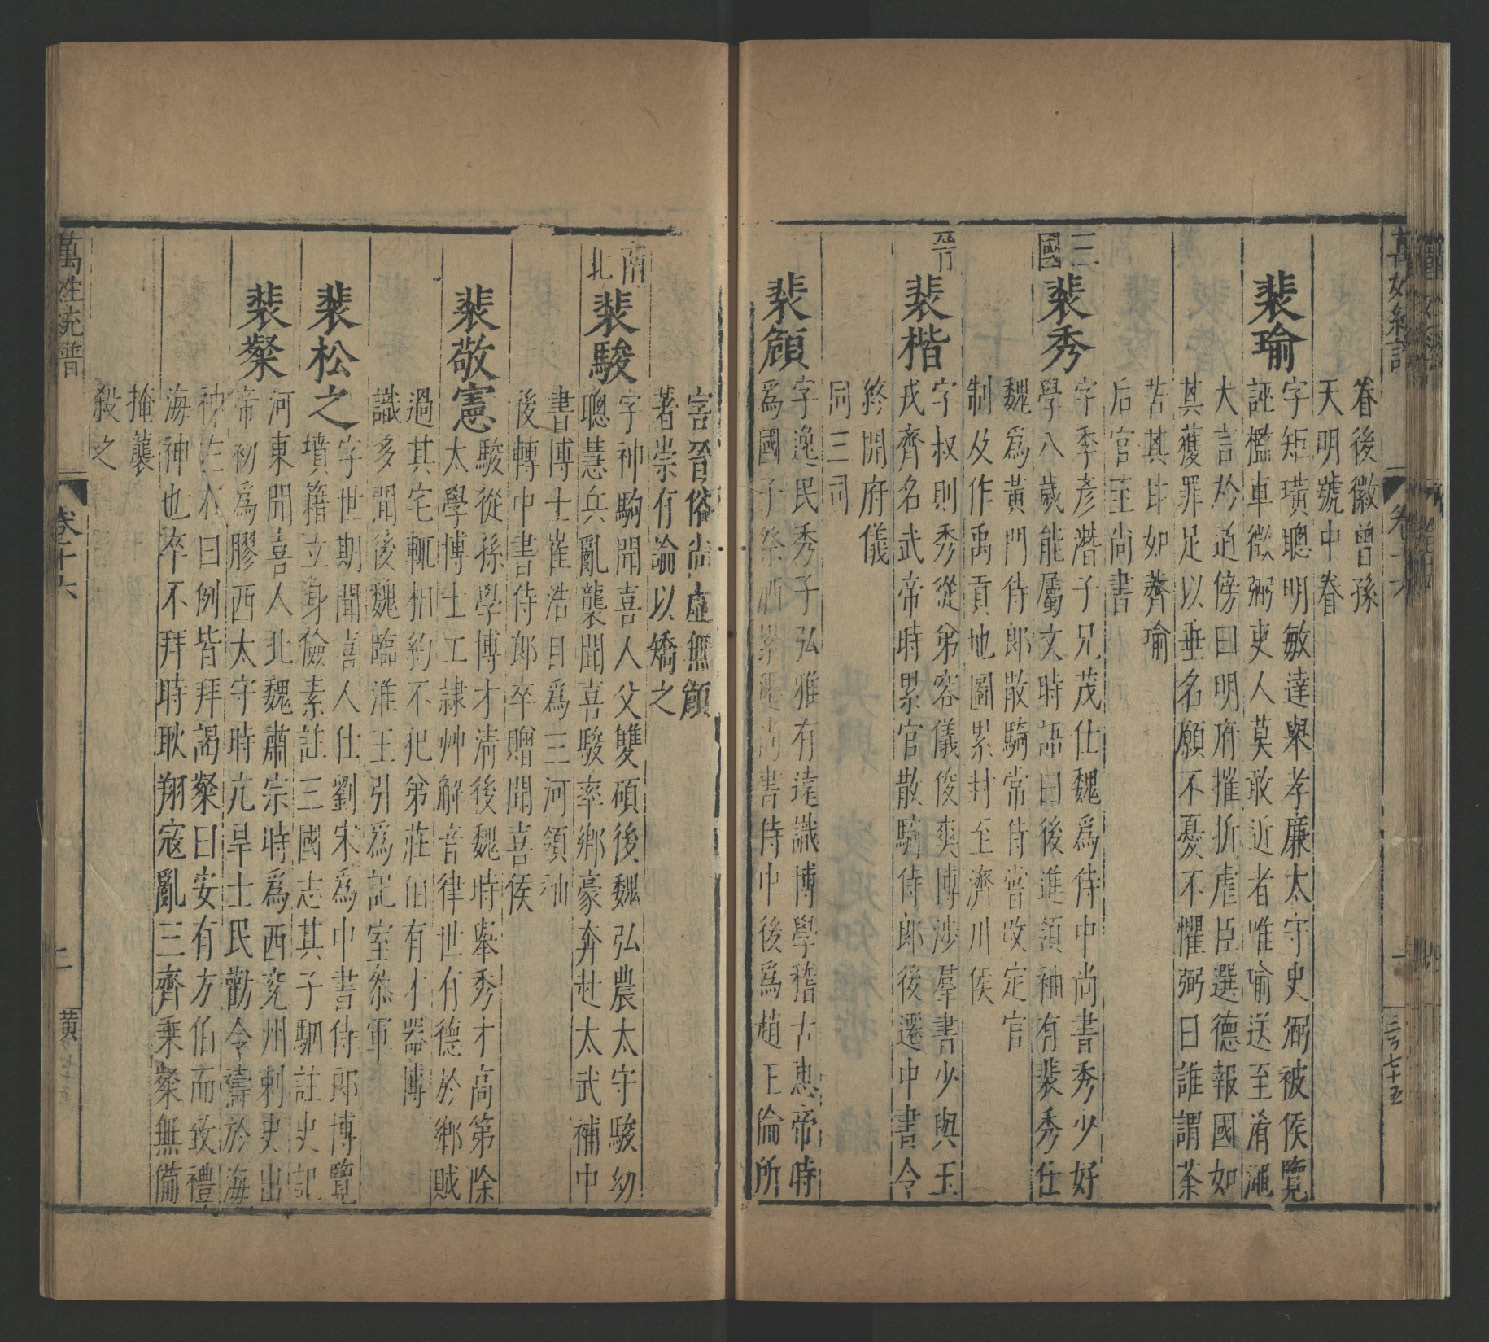 眷後徽曾孫
天明號中眷
裴瑜
字矩璜聰明敏達舉孝廉太守史弼被侯覽
誣檻車徵弼吏人莫敢近者唯喻送至淆澠
大言於道傍曰明府摧折虐臣選德報國如
其獲罪足以垂名願不憂不懼弼曰誰謂荼
苦其甘如薺瑜
后官至尚書
三國
裴秀
字季彥潛子兄茂仕魏爲侍中尚書秀少好
學八歲能屬文時語曰後進領袖有裴秀仕
魏爲黃門侍郎散騎常侍嘗改定官
制及作禹貢地圖累封至濟川侯
晉
裴楷
字叔則秀從弟容儀俊爽博涉羣書少與王
戎齊名武帝時累官散騎侍郎後遷中書令
終開府儀
同三司
裴頠
字逸民秀子弘雅有遠識博學稽古惠帝時
爲國子祭酒累遷尚書侍中後爲趙王倫所
害晉俗尚虛無頠
著崇有論以矯之
南北
裴駿
字神駒聞喜人父雙碩後魏弘農太守駿幼
聰慧兵亂襲聞喜駿率鄉豪奔赴太武補中
書博士崔浩目爲三河領袖
後轉中書侍郎卒贈聞喜侯
裴敬憲
駿從孫學博才清後魏時舉秀才高第除
太學博士工隷艸解音律世有德於鄉賊
過其宅輒相約不犯弟莊伯有才器博
識多聞後魏臨淮王引爲記室參軍
裴松之
字世期聞喜人仕劉宋爲中書侍郎博覽
墳籍立身儉素註三國志其子駰註史記
裴粲
河東聞喜人北魏肅宗時爲西兗州刺史出
帝初爲膠西太守時亢旱士民勸令禱於海
神左右曰例皆拜謁粲曰安有方伯而致禮
海神也卒不拜時耿翔寇亂三齊乘粲無備
掩襲
殺之
萬姓統譜
卷十六
二